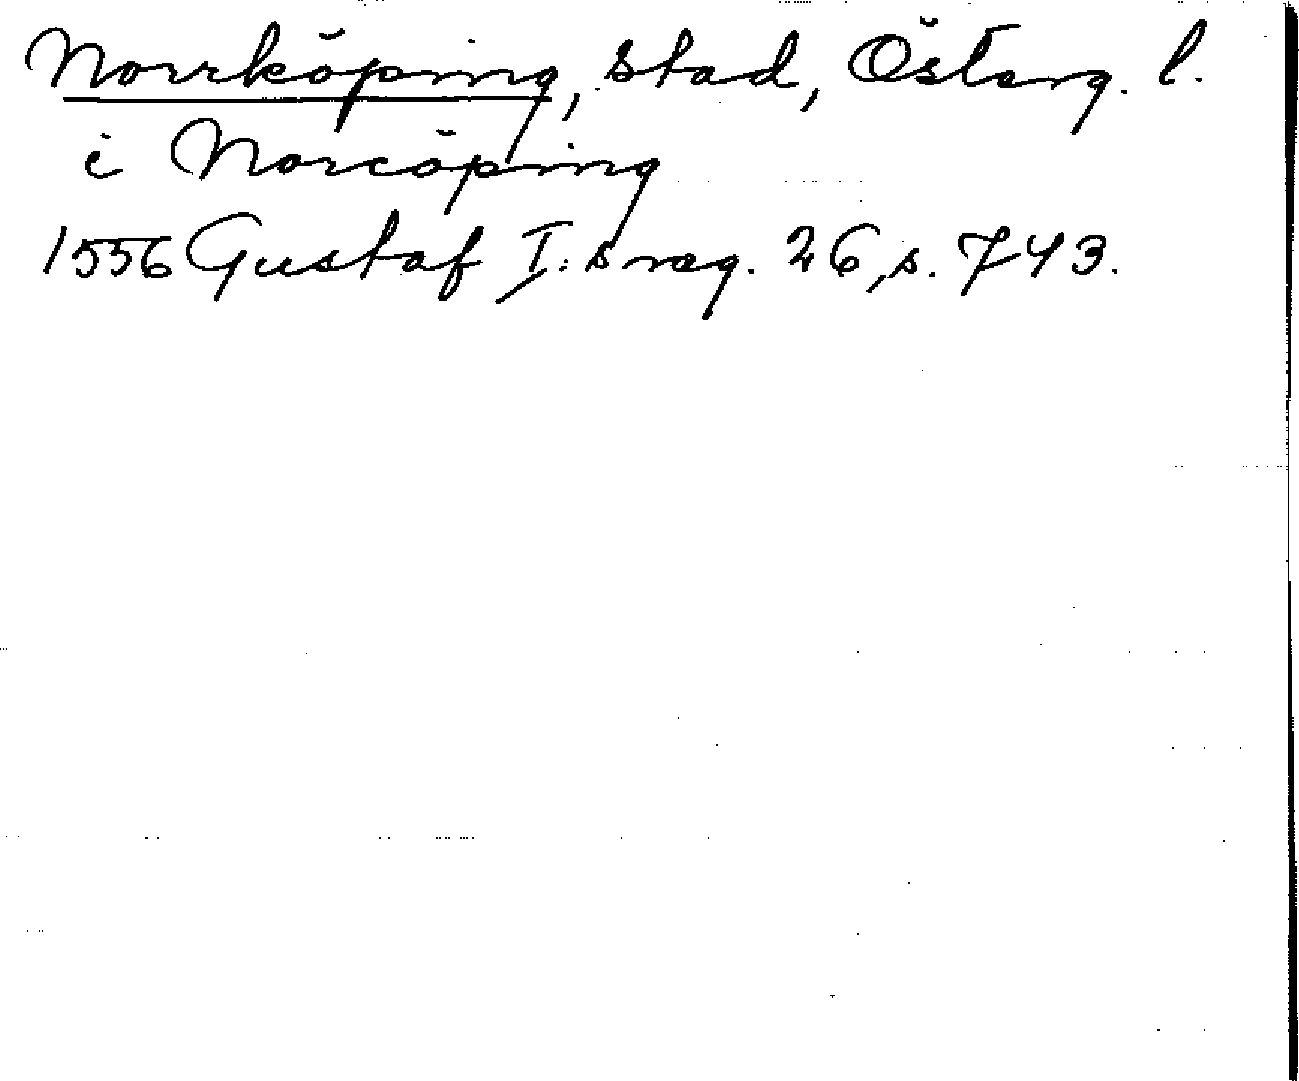 Norrköping, stad, Österg. l.
i Norcöping
1556 Gustaf I:s reg. 26, s. 743.